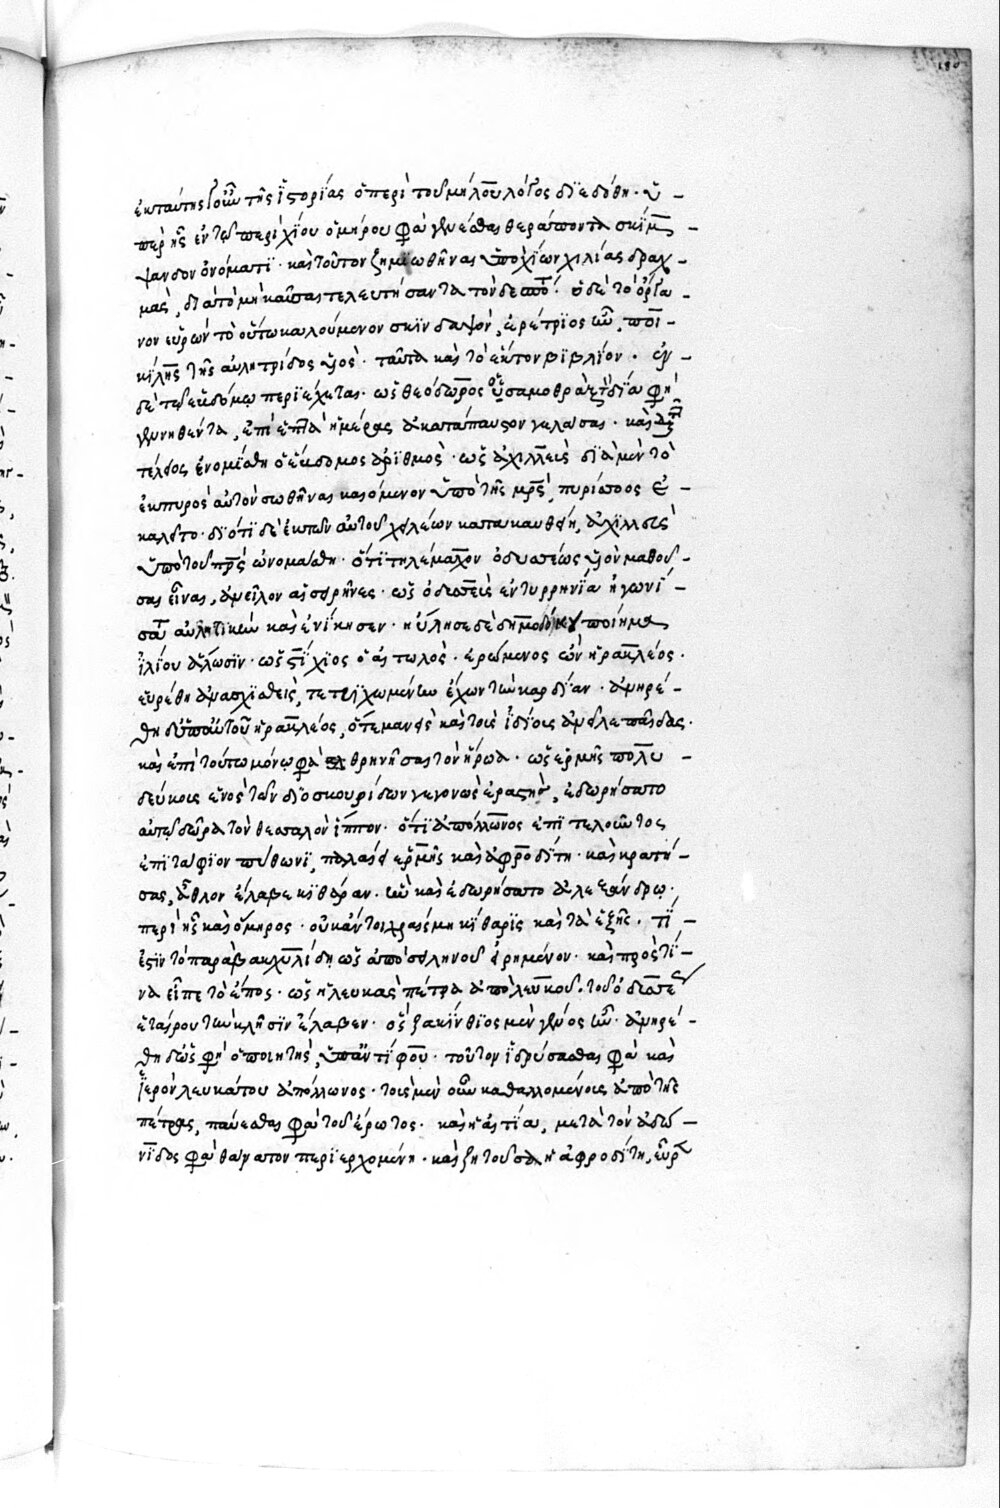 180
ἐκ ταύτης γοῦν τῆς ἱστορίας ὁ περὶ τοῦ μήλου λόγος διεδόθη· ὑ-
περ ἧς ἐν τῷ περὶ χίου ὁμήρου φασὶ γενέσθαι θεράποντα σκιν-
ψανδον ὀνόματι· καὶ τοῦτον ζημιωθῆναι ὑπὸ χίων χιλίας δραχ-
μὰς, διὰ τὸ μὴ καῦσαι τελευτήσαντα τὸν δεσπότην· ὁ δὲ τὸ ὄργα-
νον εὑρὼν τὸ οὕτω καλούμενον σκινδαψὸν, ἐρέτριος ὢν, ποι-
κίλης τῆς αὐλητρίδος υἱός· ταῦτα καὶ τὸ ἕκτον βιβλίον· ἐν
δὲ τῷ ἑβδόμῳ περιέχεται· ὡς θεόδωρος ὁ σαμοθρὰξ τὸν δία φησὶ
γεννηθέντα, ἐπὶ ἑπτὰ ἡμέρας ἀκατάπαυστον γελάσαι· καὶ διὰ τοῦτο
τέλειος ἐνομίσθη ὁ ἕβδομος ἀριθμός· ὡς ἀχιλλεὺς διὰ μὲν τὸ
ἐκ πυρὸς αὐτὸν σωθῆναι καιόμενον ὑπὸ τῆς μητρὸς, πυρίσσοος ἐ-
καλεῖτο· διότι δὲ ἓν τῶν αὐτοῦ χειλέων κατακαυθείη, ἀχιλλεὺς
ὑπὸ τοῦ πατρὸς ὠνομάσθη· ὅτι τηλέμαχον ὀδυσσέως υἱὸν μαθοῦ-
σαι εἶναι, ἀνεῖλον αἱ σειρῆνες· ὡς ὀδυσσεὺς ἐν τυρρηνίᾳ ἠγωνί-
σατο αὐλητικὴν καὶ ἐνίκησεν· ηὔλησε δὲ δημοδόκου ποίημα
ἰλίου ἅλωσιν· ὡς στίχιος ὁ αἰτωλὸς· ἐρώμενος ὢν ἡρακλέος·
εὑρέθη ἀνασχισθεὶς, τετριχωμένην ἔχων τὴν καρδίαν· ἀνῃρέ-
θη δ᾽ ὑπ᾽ αὐτοῦ ἡρακλέος, ὅτε μανεὶς καὶ τοὺς ἰδίους ἀνεῖλε παῖδας·
καὶ ἐπὶ τούτῳ μόνῳ φασὶ θρηνῆσαι τὸν ἥρωα· ὡς ἑρμῆς πολυ-
δεύκους ἑνὸς τῶν διοσκουρίδων γεγονὼς ἐραστὴς, ἐδωρήσατο
αὐτῷ δῶρα τὸν θεσσαλὸν ἵππον· ὅτι ἀπόλλωνος ἐπιτελοῦντος
ἐπιτάφιον πύθωνι, παλαίει ἑρμῆς καὶ ἀφροδίτη· καὶ κρατή-
σας, ἆθλον ἔλαβε κιθάραν· ἣν καὶ ἐδωρήσατο ἀλεξάνδρῳ·
περὶ ἧς καὶ ὅμηρος· οὐκ ἄν τοι χραίσμῃ κίθαρις καὶ τὰ ἑξῆς· τί
ἐστιν τὸ παρὰ βακχυλίδῃ ὡς ἀπὸ σειληνοῦ εἰρημένον· καὶ πρὸς τί-
να εἶπε τὸ ἔπος· ὡς ἡ λευκὰς πέτρα ἀπὸ λεύκου· τοῦ ὀδυσσέως
ἑταίρου τὴν κλῆσιν ἔλαβεν· ὃς ζακύνθιος μὲν γένος ἦν· ἀνῃρέ-
θη δ᾽ ὡς φησὶν ὁ ποιητὴς, ὑπ᾽ ἀντίφου· τοῦτον ἱδρύσασθαι φασὶ καὶ
ἱερὸν λευκάτου ἀπόλλωνος· τοὺς μὲν οὖν καθαλλομένους ἀπὸ τῆς
πέτρας, παύεσθαι φασὶ τοῦ ἔρωτος· καὶ ἡ αἰτία, μετὰ τὸν ἀδώ-
νιδος φασὶ θάνατον περιερχομένη· καὶ ζητοῦσα ἡ ἀφροδίτη, εὗρεν